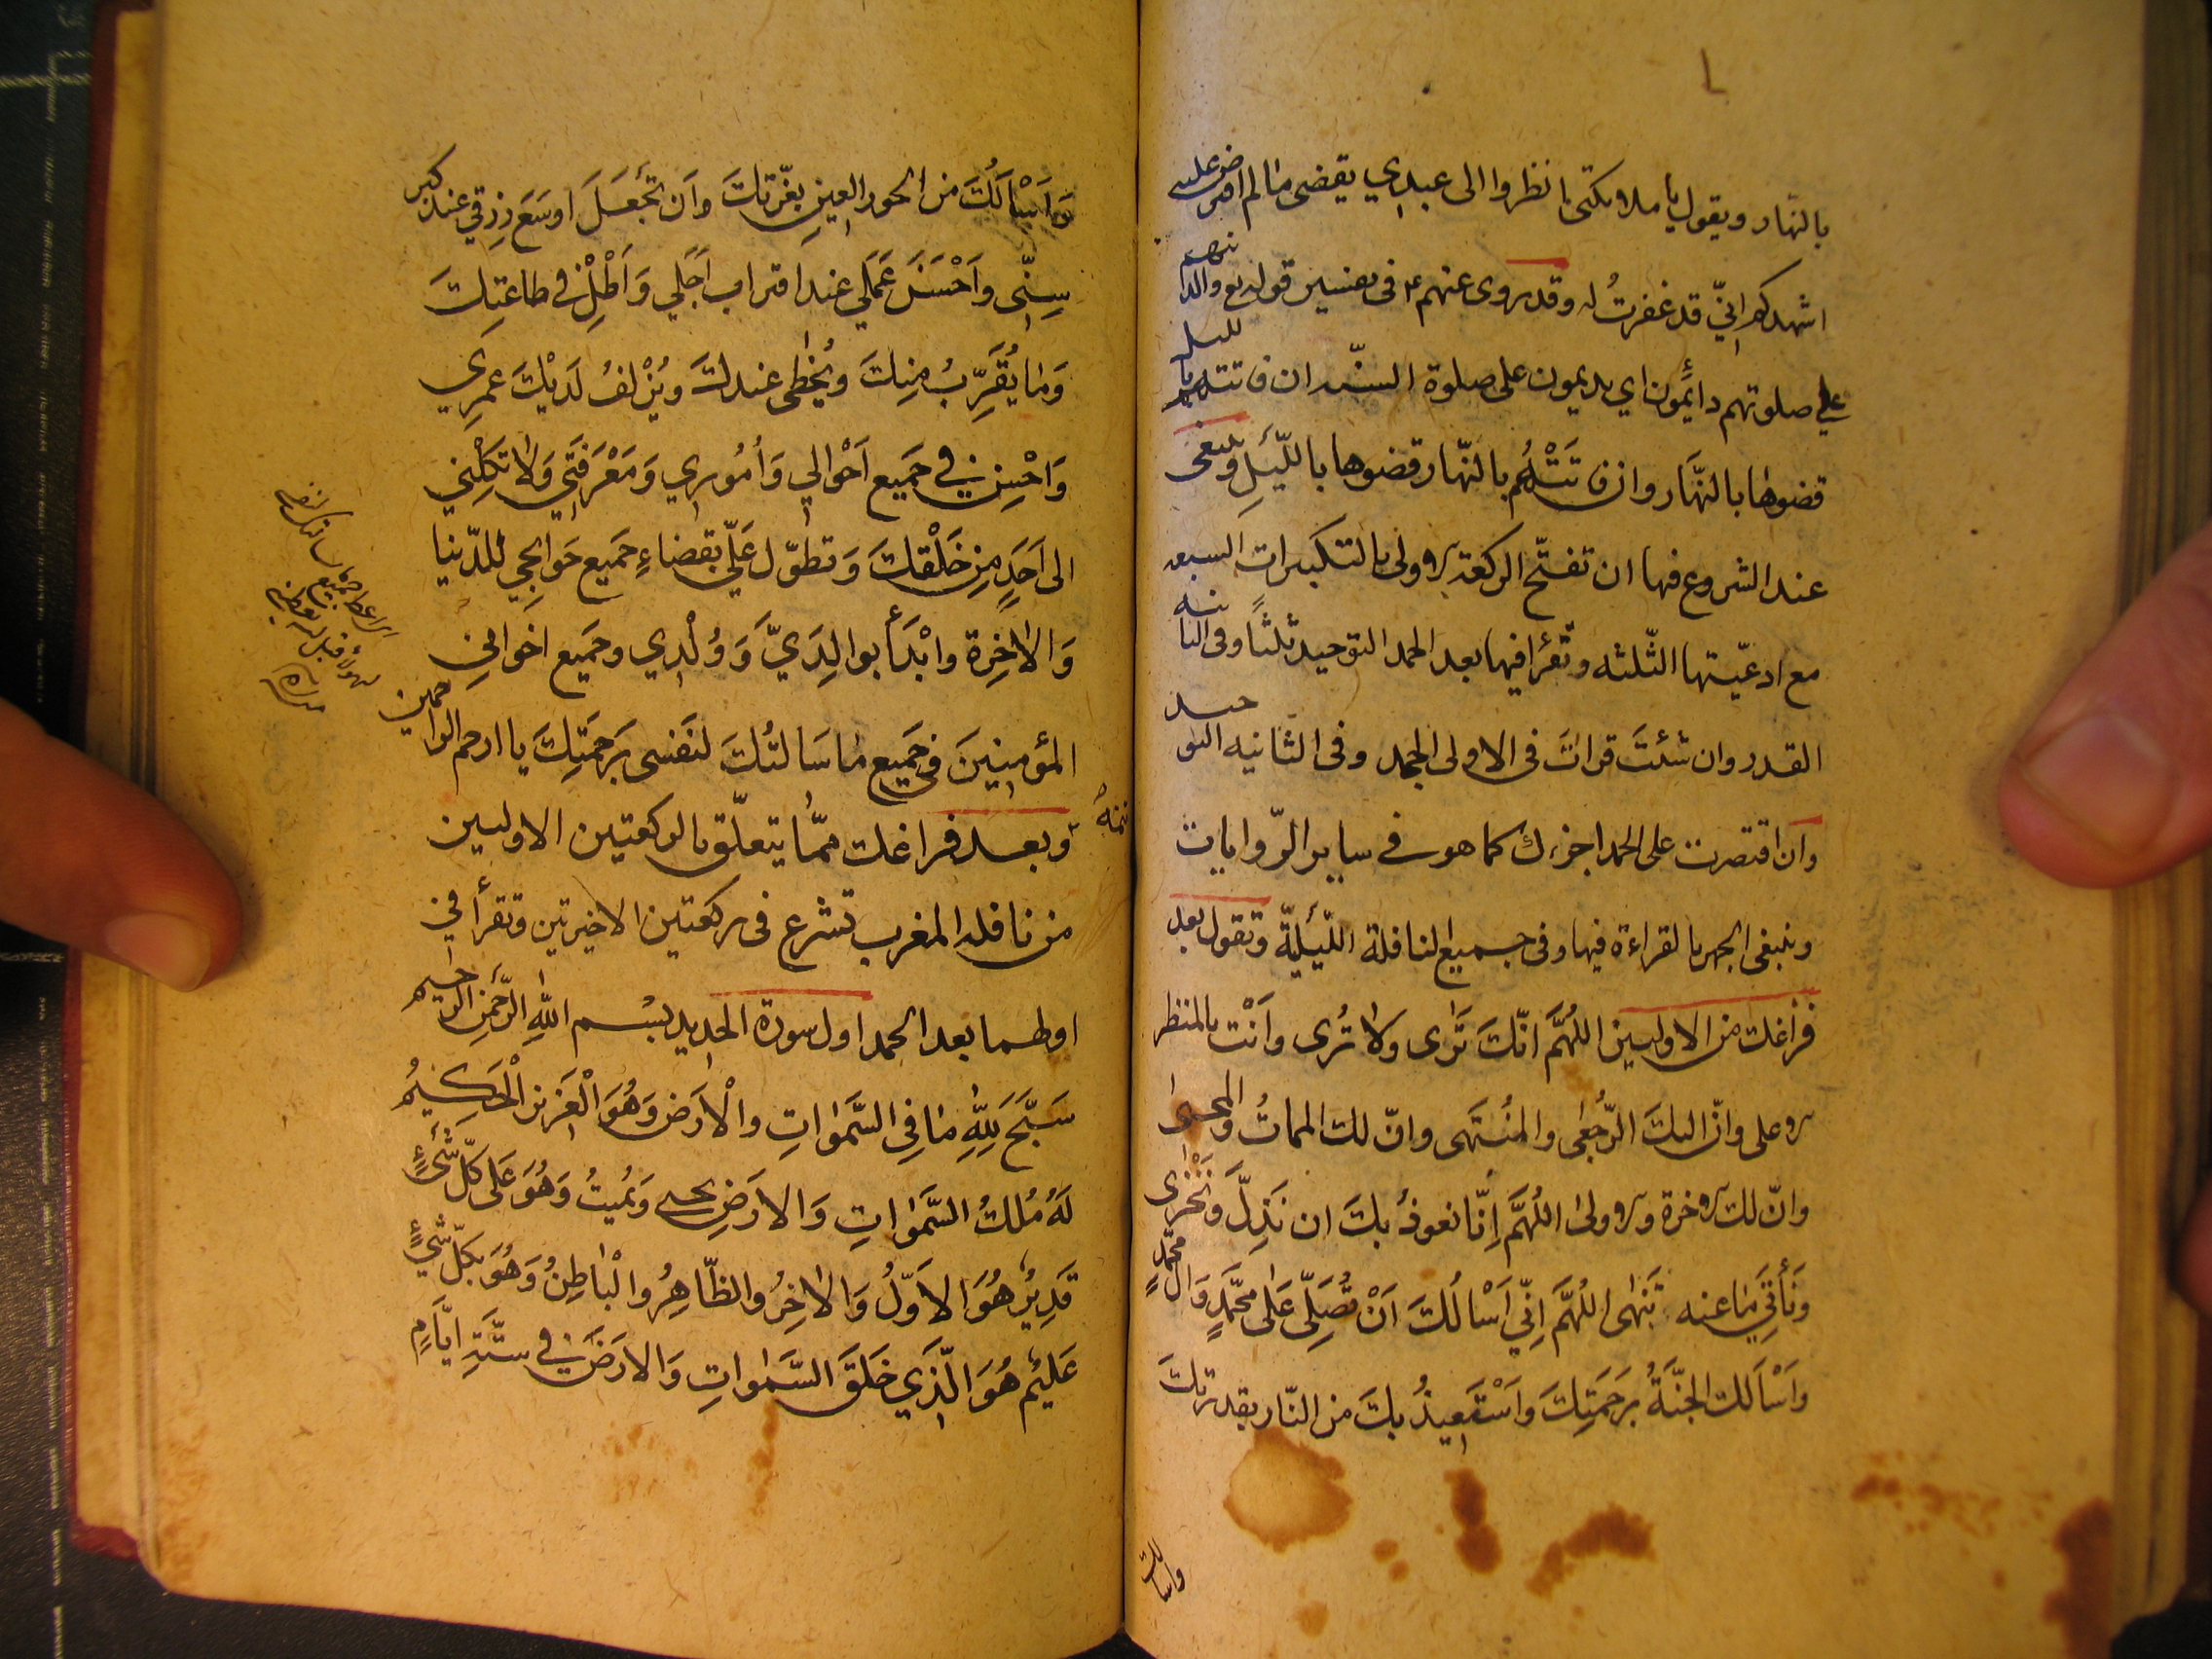 بالنهار ويقول يا ملائكتى انظروا الى عبدي يقضى ما لم افترض عليه
اشهدكم انّي قد غفرتُ له وقد روى عنهم ع فى تفسير قوله تع والذ ينهم
على صلوتهم دائمون اي يديمون على صلوة السنّه ان فاتتهم بالليل
قضوها بالنّهار وان فاتَتْهُم بالنّهار قضوها باللّيلِ وينبغى
عند الشروع فيها ان تفتّح الركعة الاولى بالتكبيرات السبعه
مع ادعيّتها الثّلثه وتقرأ فيها بعد الحمد التوحيد ثلثاً وفى الثانيه
القدر وان شئتَ قراتَ فى الاولى الجحد وفى الثانيه التوحيد
وان اقتصرت على الحمد اجزءك كما هو فے ساير الرّوايات
وينبغى الجهر بالقراءة فيها وفى جميع النافلة اللّيليّة وتقول بعد
فراغك من الاوليين اللّهُمَّ انّكَ تَرٰى ولا تُرى وانْت بالمنظر
الاعلى وانّ اليكَ الرّجعٰى والمُنتَهى وانّ لك المماتُ والمحيٰى
وانّ لك الاخرة والاولى اللّهُمَّ اِنّا نعوذُ بكَ ان نَذِلَّ ونَخْزٰى
ونَأتِيَ ما عنه تنهٰى اللّهُمَّ اِنّي اَسْالُكَ اَنْ تُصَلِّى عَلٰى محَّمَدٍ وَال محمّدٍ
واَسْاَلك الجنَّةَ بِرَحمَتِكَ واَسْتَعِيذُ بكَ من النّار بقدرتكَ
واسالك
وَاَسْاَلُكَ من الحور العينِ بعِزّتكَ وان تجْعَلَ اوسَعَ رِزقي عند كبر
سِنِّى واَحْسَنَ عَمَلي عند اقتراب اَجَلي وَاَطِلْ في طاعتِكَ
وَما يُقَرِّبُ مِنكَ ويُحْظٰى عندكَ ويُزْلفُ لَدَيْكَ عمرِي
وَاَحْسِن في جَميع اَحْوالي وَاُمُوري وَمَعْرَفَتي وَلا تكِلْني
الى اَحَدٍ مِن خَلْقكَ وَتطوّل عَليّ بقضاءِ جَميع حَوائجي للدّنيا
وَالاٰخِرَة وابْدَأ بوالِدَيَّ وَوُلْدِي وجَميع اخواني
المؤمِنينَ في جَميع ما سَالتُكَ لنَفسى بِرَحَمَتِكَ يا ارحم الراحمين
وبعد فراغك ممّا يتعلّق بالركعتين الاوليين
من نافله المغرب تشرع فى ركعتين الاخيرتين وتقرأ في
اولهما بعد الحمد اول سورة الحديد بسْم اللهِ الرَّحْمٰنِ الرَّحيم
سَبَّحَ لِلّهِ مٰا فِي السَّمٰواتِ والْاَرَض وَهُوَ الْعَزيز الْحَكيمُ
لَهُ مُلكُ السَّمٰواتِ وَالارَضِ يحيي وَيُميتُ وَهُوَ عَلٰى كلّ شَيْءٍ
قَدِيرٌ هُوَ الاَوّلُ وَالاٰخِرُ والظّاهِرُ والْبٰاطِنُ وَهُوَ بكلّ شَيْءٍ
عَليٌم هُوَ الّذِي خَلَقَ السَّمٰواتِ وَالارَضَ في ستَّةِ ايّامٍ